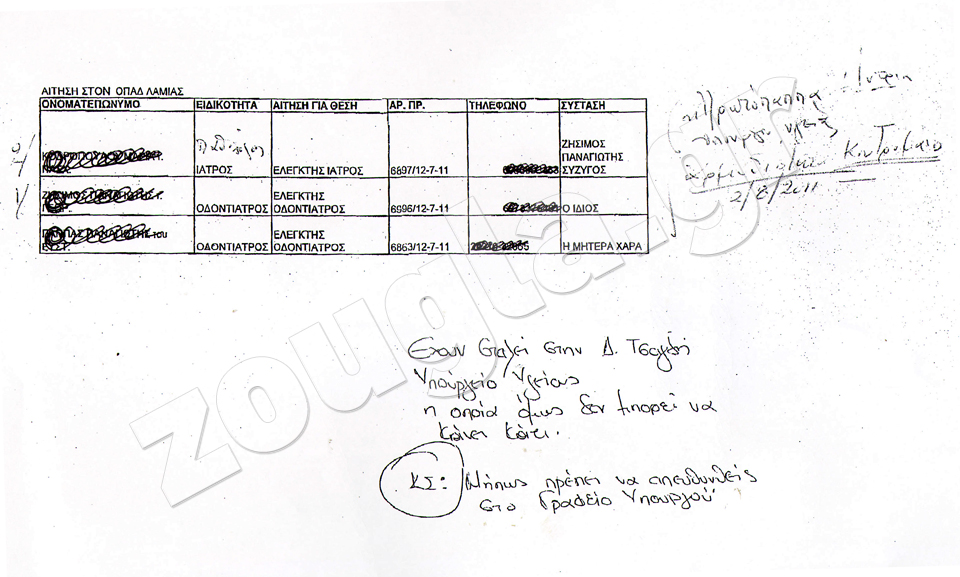 ΑΙΤΗΣΗ ΣΤΟΝ ΟΠΑΔ ΛΑΜΙΑΣ
ΟΝΟΜΑΤΕΠΩΝΥΜΟ ΕΙΔΙΚΟΤΗΤΑ ΑΙΤΗΣΗ ΓΙΑ ΘΕΣΗ ΑΡ. ΠΡ. ΤΗΛΕΦΩΝΟ ΣΥΣΤΑΣΗ
ΙΑΤΡΟΣ ΕΛΕΓΚΤΗΣ ΙΑΤΡΟΣ 6897/12-7-11 ΖΗΣΙΜΟΣ ΠΑΝΑΓΙΩΤΗΣ ΣΥΖΥΓΟΣ
ΟΔΟΝΤΙΑΤΡΟΣ ΕΛΕΓΚΤΗΣ ΟΔΟΝΤΙΑΤΡΟΣ 6996/12-7-11 Ο ΙΔΙΟΣ
του
ΟΔΟΝΤΙΑΤΡΟΣ ΕΛΕΓΚΤΗΣ ΟΔΟΝΤΙΑΤΡΟΣ 6863/12-7-11 Η ΜΗΤΕΡΑ ΧΑΡΑ
Πρωτόπαππα
2/8/2011
Έχουν σταλεί στην Δ. Τσαγλή
Υπουργείο Υγείας
η οποία όμως δεν μπορεί να
κάνει κάτι.
ΚΣ: Μήπως πρέπει να απευθυνθείς
στο Γραφείο Υπουργού
zougla.gr